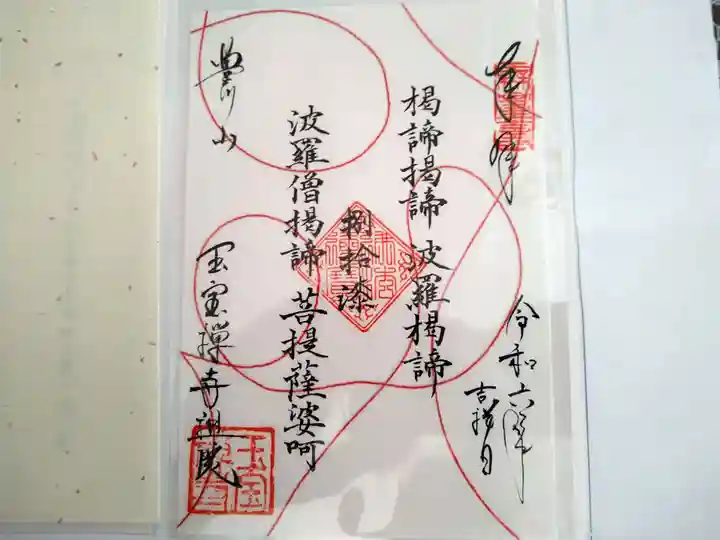 奉拝
令和六年
吉祥日
揭諦揭諦 波羅揭諦
捌拾漆
波羅僧揭諦 菩提薩婆呵
豊山
玉宝禅寺